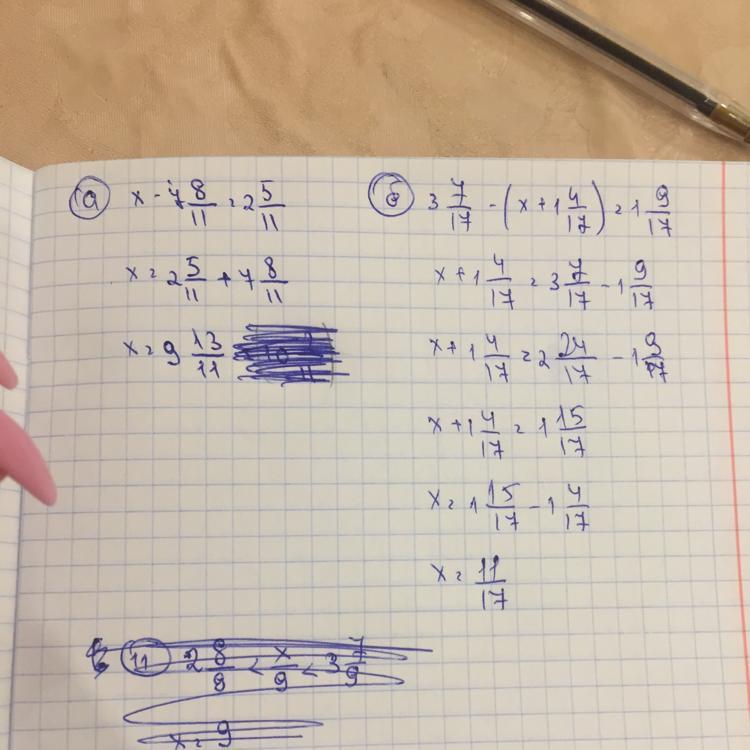 а x - 7 8/11 = 2 5/11
x = 2 5/11 + 7 8/11
x = 9 13/11
б 3 7/17 - (x + 1 4/17) = 1 9/17
x + 1 4/17 = 3 7/17 - 1 9/17
x + 1 4/17 = 2 24/17 - 1 9/17
x + 1 4/17 = 1 15/17
x = 1 15/17 - 1 4/17
x = 11/17
11 2 8/9 < x/9 < 3 7/9
x = 9